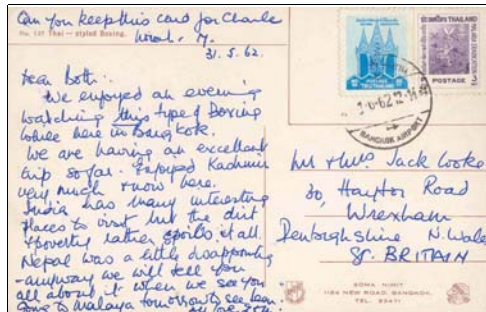 Can you keep this card for Charle
No. 137 Thai – styled Boxing.
31.5.62.
Dear Both:
We enjoyed an evening
watching this type of Boxing
while here in Bangkok.
We are having an excellent
trip so far. Enjoyed Kashmir
very much & now here.
India has many interesting
places to visit but the dirt
& poverty rather spoils it all.
Nepal was a little disappointing
- anyway we will tell you
all about it when we see you
Going to Malaya tomorrow
THAILAND
POSTAGE
62 12
BANGKOK AIRPORT
Mr & Mrs Jack Cooke
30, Road
Wrexham
Denbighshire N. Wale
BRITAIN
SOMA NIMIT
1184 NEW ROAD, BANGKOK.
TEL. 33471